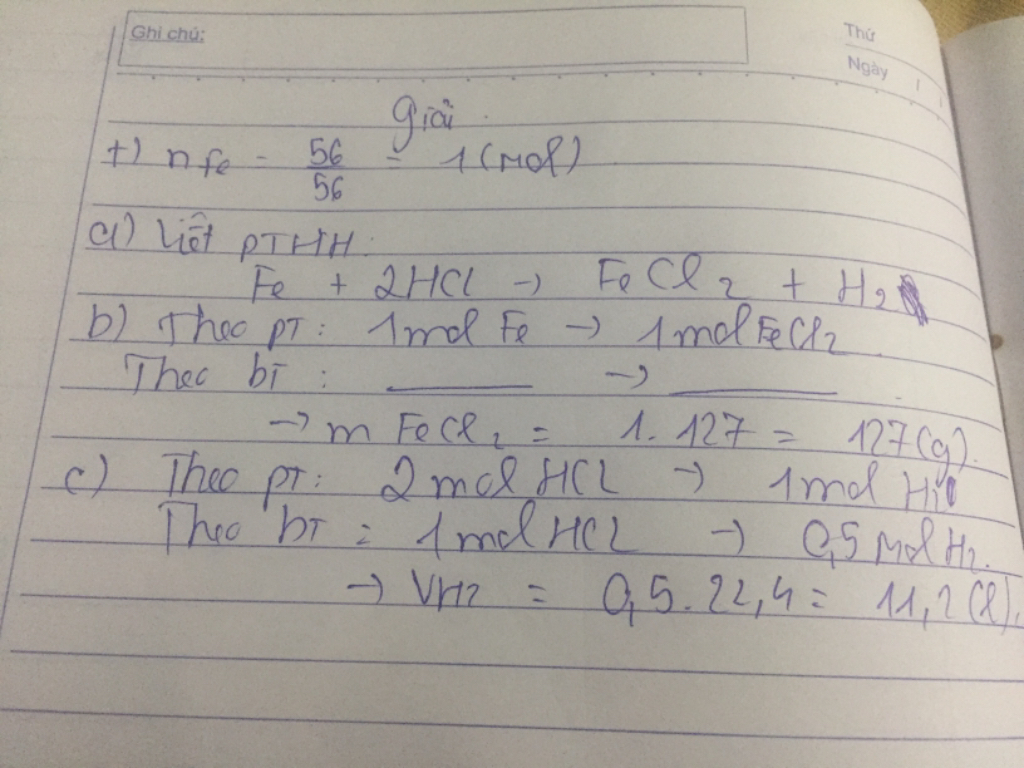 Ghi chú:
Thứ
Ngày
Giải
+) n Fe = 56/56 = 1 (mol)
a) Viết PTHH:
Fe + 2HCl → FeCl2 + H2
b) Theo PT: 1mol Fe → 1mol FeCl2
Theo bT : ——— → ———
→ m FeCl2 = 1.127 = 127(g).
c) Theo pT: 2mol HCl → 1mol H2
Theo bT : 1mol HCl → 0,5 mol H2.
→ VH2 = 0,5.22,4 = 11,2(l).